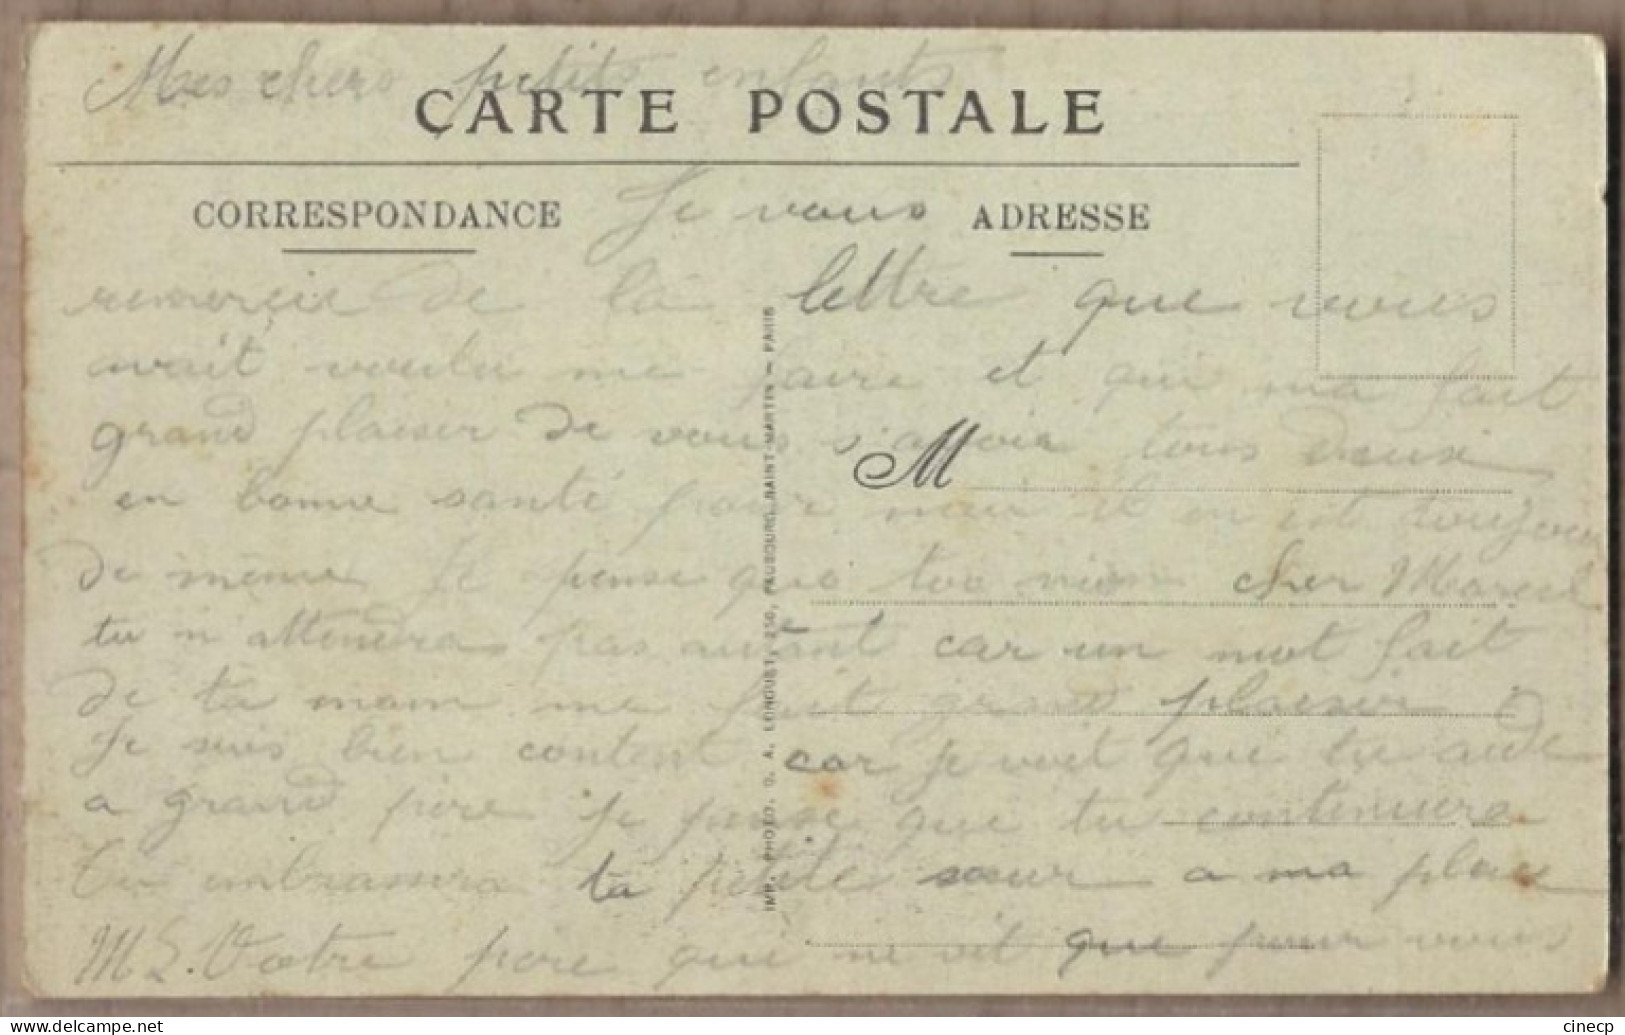 Mes chers petits enfants
CARTE POSTALE
CORRESPONDANCE Je vous ADRESSE
remercie de la lettre que vous
avait voulu me faire et qui ma fait
grand plaisir de vous s'avoir tous deux
M
en bonne santé pour moi il en est toujour
de même Je pense que toi mon cher Marcel
tu n'attendra pas autant car un mot fait
de ta main me fait grand plaisir
Je suis bien content car je voit que tu aide
a grand père Je pense que tu contenuera
Tu embrassera ta petite sœur a ma place
M L. Votre père qui ne vit que pour vous
IMP. PHOTO. O. A. LONGUET, 250, FAUBOURG SAINT-MARTIN — PARIS
delcampe.net
cinecp